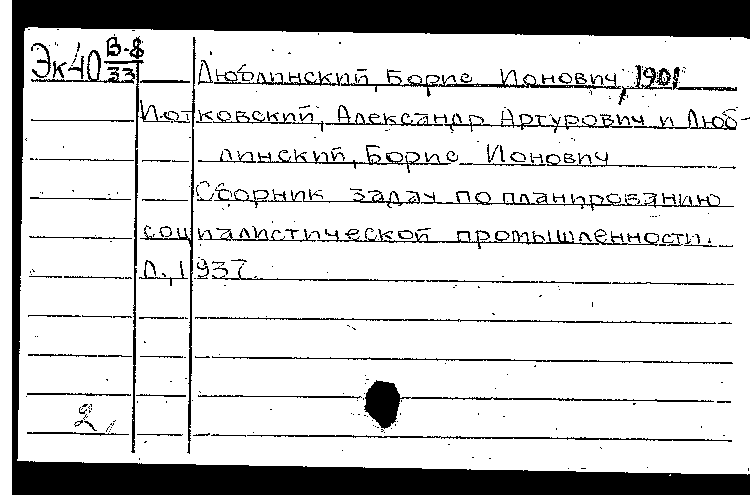 Эк40 В-8
33
Люблинский, Борис Ионович, 1901
Иотковский, Александр Артурович и Люб-
линский, Борис Ионович
Сборник задач по планированию
социалистической промышленности.
Л., 1937.
2,